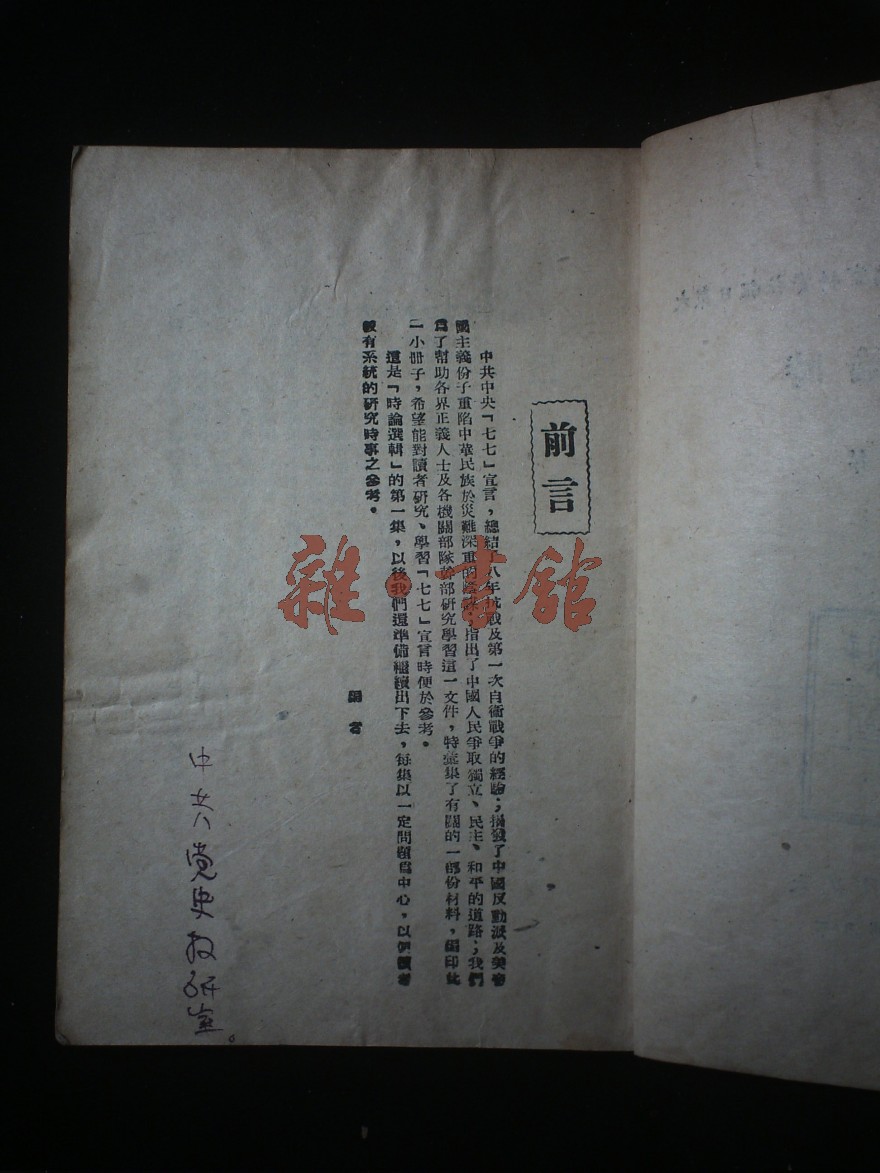 前言
中共中央「七七」宣言，總結了八年抗戰及第一次自衛戰爭的經驗；揭發了中國反動派及美帝
國主義份子重陷中華民族於災難深重的陰謀；指出了中國人民爭取獨立、民主、和平的道路；我們
爲了幫助各界正義人士及各機關部隊幹部研究學習這一文件，特蒐集了有關的一部份材料，編印此
一小冊子，希望能對讀者研究、學習「七七」宣言時便於參考。
這是「時論選輯」的第一集，以後我們還準備繼續出下去，每集以一定問題爲中心，以供讀者
較有系統的研究時事之參考。
編者
中共党史教研室。
雜·書館